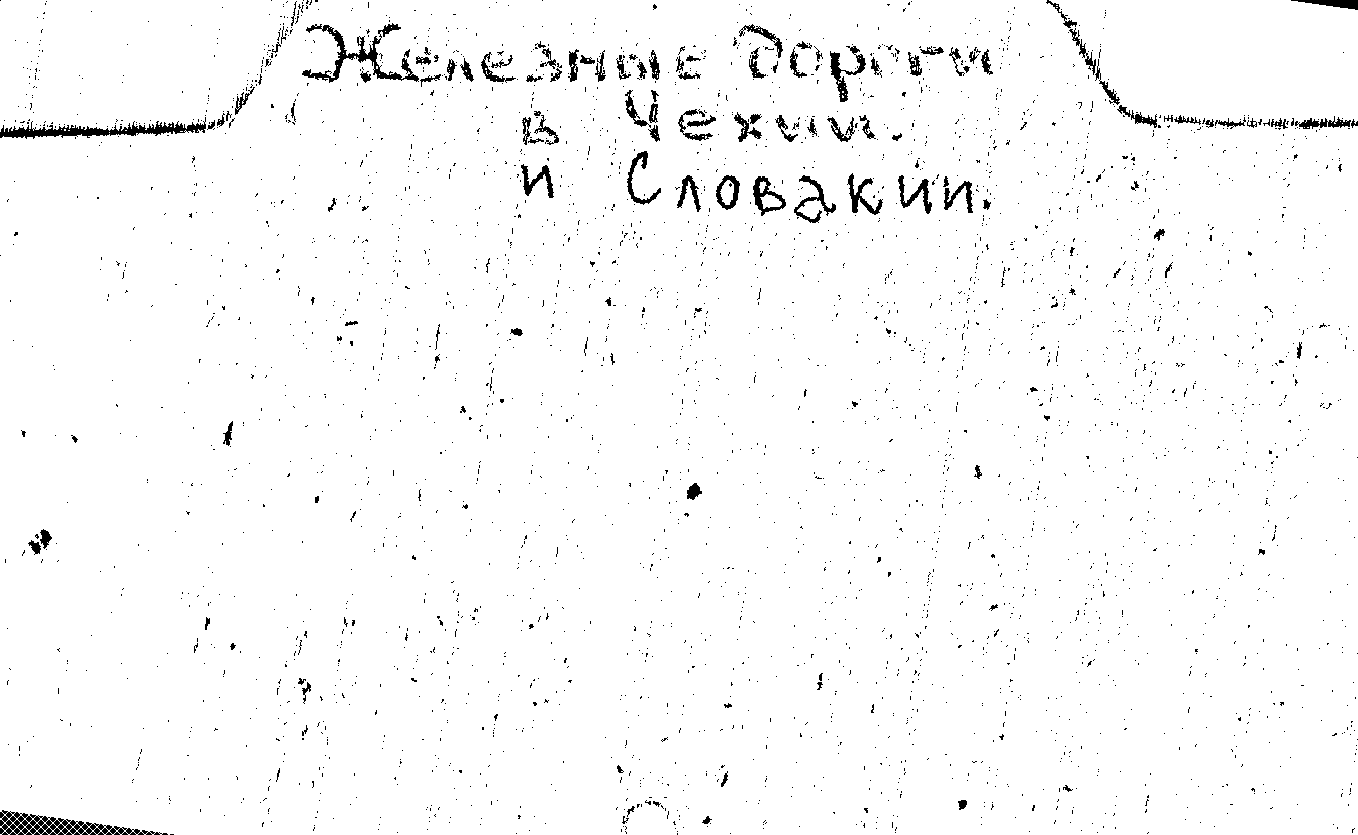 Железные дороги
в Чехии.
и Словакии.